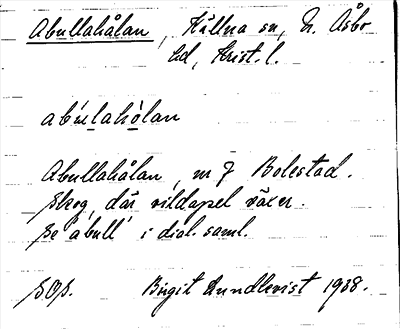 Abullahålan, Källna sn, N. Åsbo
hd, Krist. l.
abúllahólan
Abullahålan, m f Bolestad.
Skog, där vildapel växer.
Se 'abull' i dial. saml.
SOS. Birgit Lundkvist 1938.